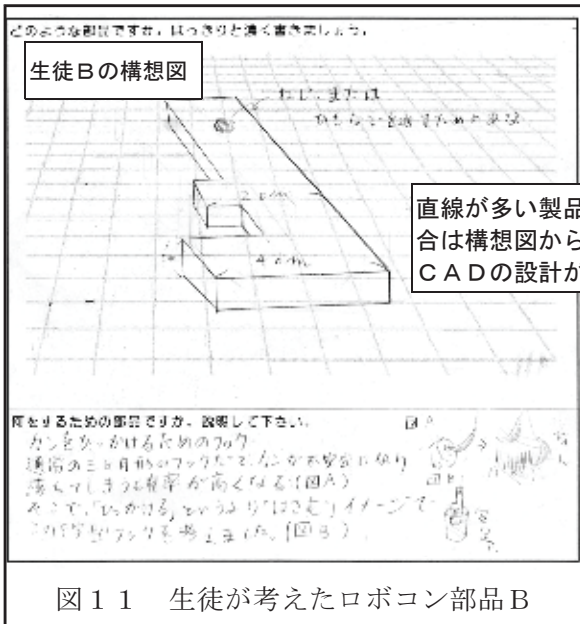 どのような部品ですか。はっきりと濃く書きましょう。
生徒Bの構想図
ねじ、または
2cm
直線が多い製品
合は構想図から
CADの設計が
4cm
何をするための部品ですか。説明して下さい。
図A
カンをひっかけるためのフック
通常の三ヶ月形のフックだと、カンが不安定になり
落ちてしまう確率が高くなる(図A)
そこで、「ひっかける」というより「はさむ」イメージで
この形のフックを考えました。(図B)
図11 生徒が考えたロボコン部品B